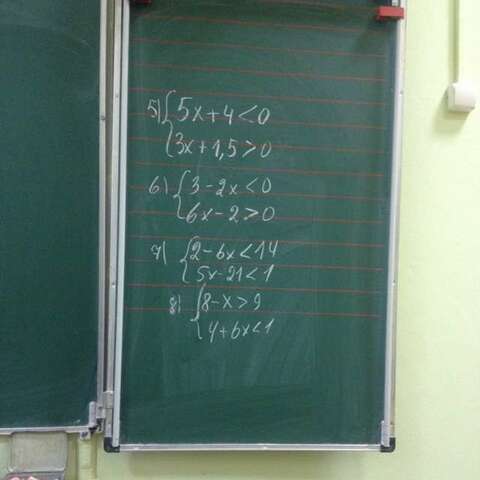 5) { 5x+4<0
3x+1,5>0
6) { 3-2x<0
6x-2>0
7) { 2-6x<14
5x-21<1
8) { 8-x>9
4+6x<1